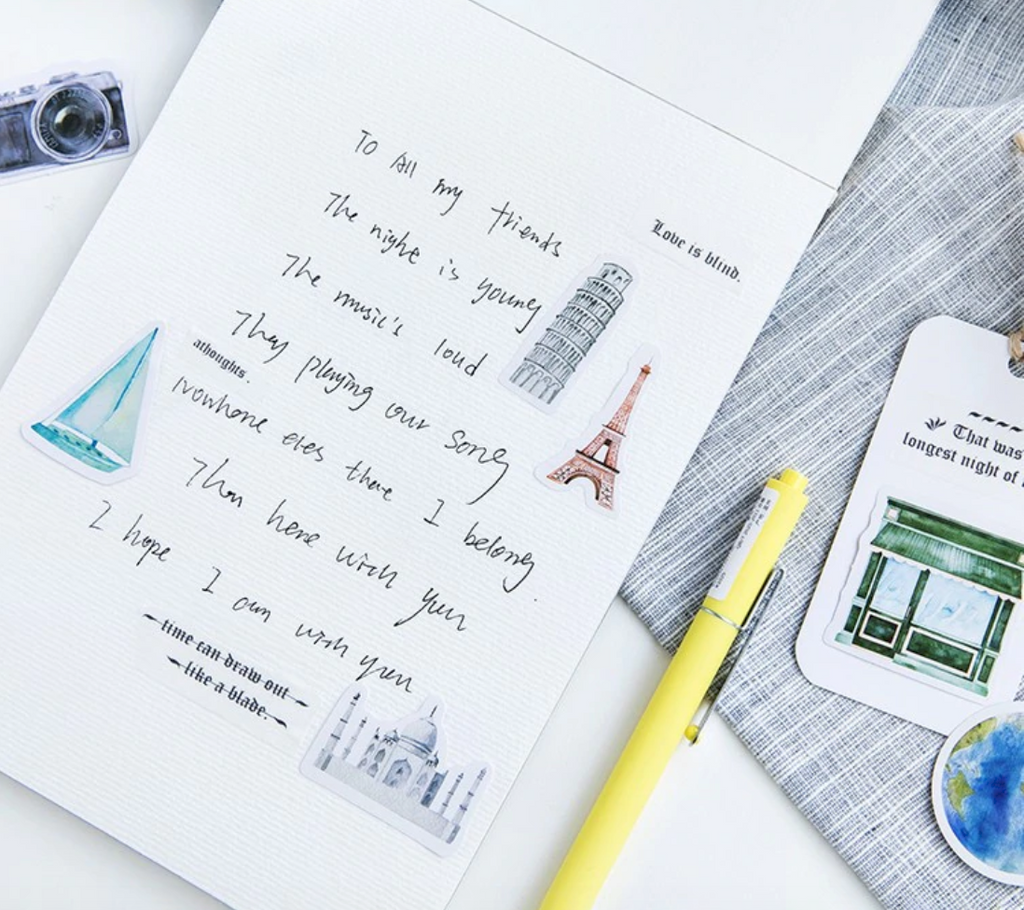 To All my friends
The nighe is young
Love is blind.
The music's loud
They playing our song
athoughts.
Nowhere eles there I belong.
Than here with you
I hope I am with you
time can draw out
like a blade.
That was
longest night of